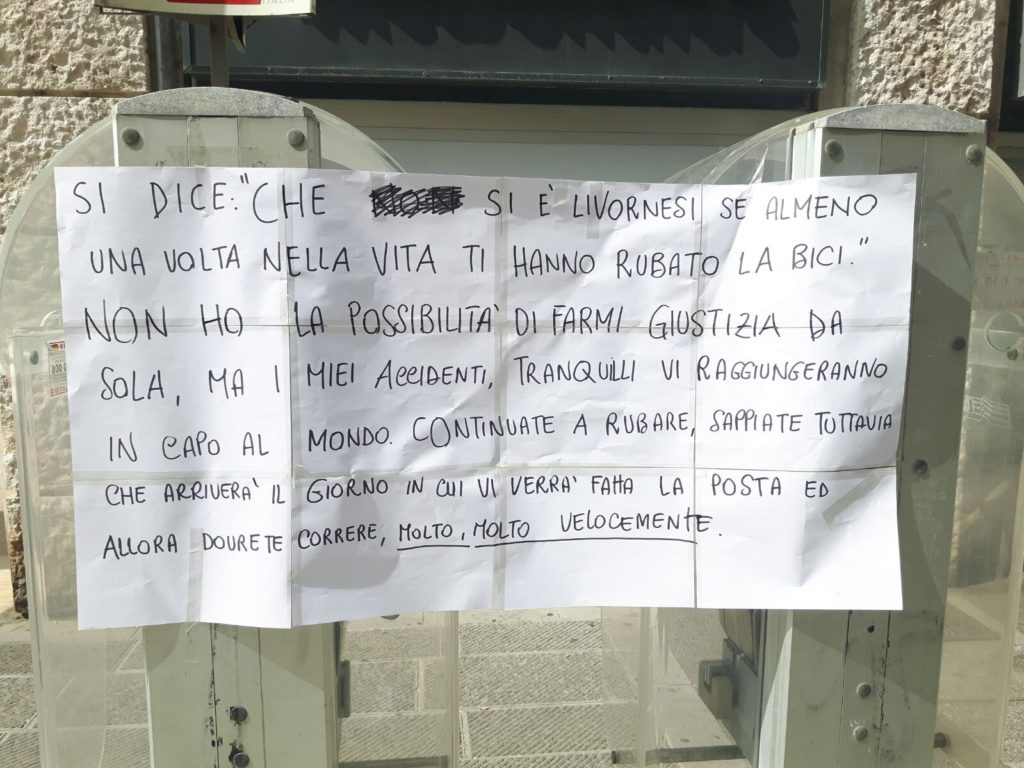 ITALIA
SI DICE: "CHE SI È LIVORNESI SE ALMENO
UNA VOLTA NELLA VITA TI HANNO RUBATO LA BICI."
NON HO LA POSSIBILITA' DI FARMI GIUSTIZIA DA
SOLA, MA I MIEI ACCIDENTI, TRANQUILLI VI RAGGIUNGERANNO
IN CAPO AL MONDO. CONTINUATE A RUBARE, SAPPIATE TUTTAVIA
CHE ARRIVERA' IL GIORNO IN CUI VI VERRA' FATTA LA POSTA ED
ALLORA DOVRETE CORRERE, MOLTO, MOLTO VELOCEMENTE.